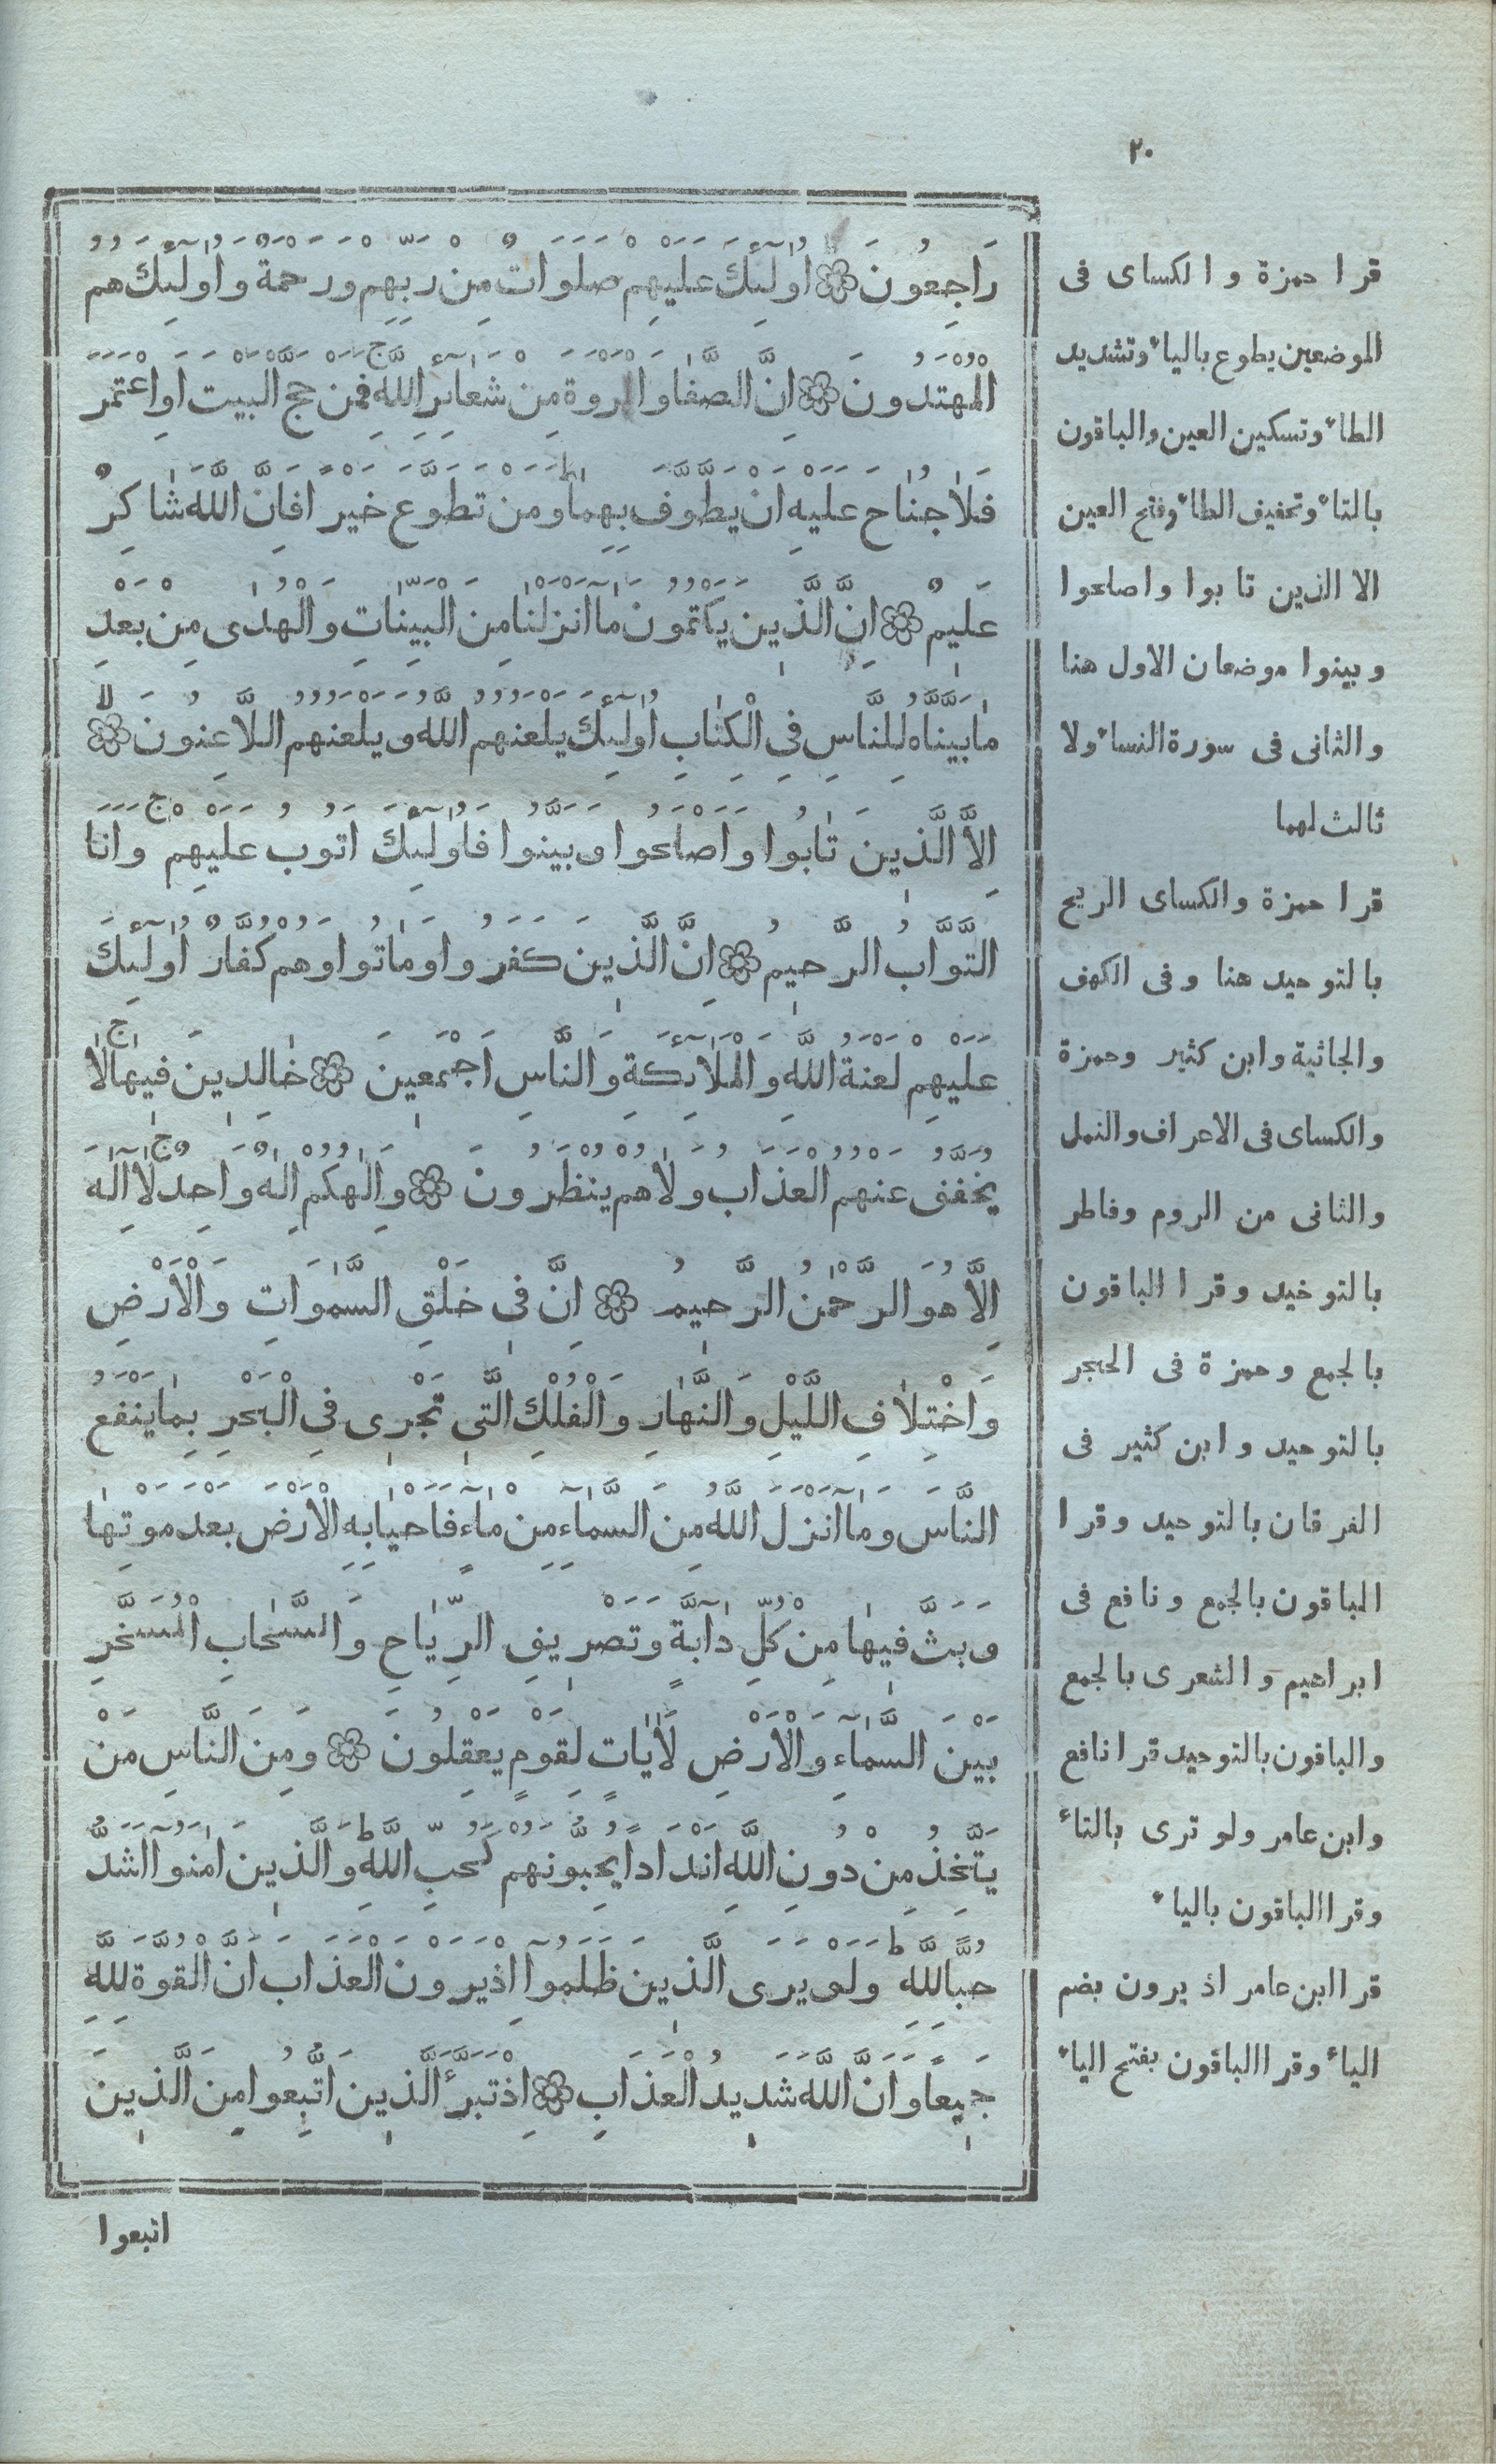 ٢٠
رَاجِعُونَ ۞ اُولٰۤئِكَ عَلَيْهِمْ صَلَوَاتٌ مِنْ رَبِّهِمْ وَرَحْمَةٌ وَاُولٰۤئِكَ هُمُ
الْمُهْتَدُونَ ۞ اِنَّ الصَّفَا وَالْمَرْوَةَ مِنْ شَعَاۤئِرِ اللّٰهِ ج فَمَنْ حَجَّ الْبَيْتَ اَوِ اعْتَمَرَ
فَلَا جُنَاحَ عَلَيْهِ اَنْ يَطَّوَّفَ بِهِمَا ط وَمَنْ تَطَوَّعَ خَيْرًا فَاِنَّ اللّٰهَ شَاكِرٌ
عَلِيمٌ ۞ اِنَّ الَّذِينَ يَكْتُمُونَ مَاۤ اَنْزَلْنَا مِنَ الْبَيِّنَاتِ وَالْهُدٰى مِنْ بَعْدِ
مَا بَيَّنَّاهُ لِلنَّاسِ فِى الْكِتَابِ اُولٰۤئِكَ يَلْعَنُهُمُ اللّٰهُ وَيَلْعَنُهُمُ اللَّاعِنُونَ لا ۞
اِلَّا الَّذِينَ تَابُوا وَاَصْلَحُوا وَبَيَّنُوا فَاُولٰۤئِكَ اَتُوبُ عَلَيْهِمْ ج وَاَنَا
التَّوَّابُ الرَّحِيمُ ۞ اِنَّ الَّذِينَ كَفَرُوا وَمَاتُوا وَهُمْ كُفَّارٌ اُولٰۤئِكَ
عَلَيْهِمْ لَعْنَةُ اللّٰهِ وَالْمَلٰۤئِكَةِ وَالنَّاسِ اَجْمَعِينَ ۞ خَالِدِينَ فِيهَا ج لَا
يُخَفَّفُ عَنْهُمُ الْعَذَابُ وَلَا هُمْ يُنْظَرُونَ ۞ وَاِلٰهُكُمْ اِلٰهٌ وَاحِدٌ ج لَاۤ اِلٰهَ
اِلَّا هُوَ الرَّحْمٰنُ الرَّحِيمُ ۞ اِنَّ فِى خَلْقِ السَّمٰوَاتِ وَالْاَرْضِ
وَاخْتِلَافِ اللَّيْلِ وَالنَّهَارِ وَالْفُلْكِ الَّتِى تَجْرِى فِى الْبَحْرِ بِمَا يَنْفَعُ
النَّاسَ وَمَاۤ اَنْزَلَ اللّٰهُ مِنَ السَّمَاۤءِ مِنْ مَاۤءٍ فَاَحْيَا بِهِ الْاَرْضَ بَعْدَ مَوْتِهَا
وَبَثَّ فِيهَا مِنْ كُلِّ دَاۤبَّةٍ وَتَصْرِيفِ الرِّيَاحِ وَالسَّحَابِ الْمُسَخَّرِ
بَيْنَ السَّمَاۤءِ وَالْاَرْضِ لَاٰيَاتٍ لِقَوْمٍ يَعْقِلُونَ ۞ وَمِنَ النَّاسِ مَنْ
يَتَّخِذُ مِنْ دُونِ اللّٰهِ اَنْدَادًا يُحِبُّونَهُمْ كَحُبِّ اللّٰهِ ط وَالَّذِينَ اٰمَنُوۤا اَشَدُّ
حُبًّا لِلّٰهِ ط وَلَوْ يَرَى الَّذِينَ ظَلَمُوۤا اِذْ يَرَوْنَ الْعَذَابَ اَنَّ الْقُوَّةَ لِلّٰهِ
جَمِيعًا وَاَنَّ اللّٰهَ شَدِيدُ الْعَذَابِ ۞ اِذْ تَبَرَّءَ الَّذِينَ اتُّبِعُوا مِنَ الَّذِينَ
اتبعوا
قرا حمزة والكساى فى
الموضعين يطوع بالياء وتشديد
الطاء وتسكين العين والباقون
بالتاء وتخفيف الطاء وفتح العين
الا الذين تابوا واصلحوا
وبينوا موضعان الاول هنا
والثانى فى سورة النساء ولا
ثالث لهما
قرا حمزة والكساى الريح
بالتوحيد هنا وفى الكهف
والجاثية وابن كثير وحمزة
والكساى فى الاعراف والنمل
والثانى من الروم وفاطر
بالتوحيد وقرا الباقون
بالجمع وحمزة فى الحجر
بالتوحيد وابن كثير فى
الفرقان بالتوحيد وقرا
الباقون بالجمع ونافع فى
ابراهيم والشعرى بالجمع
والباقون بالتوحيد قرا نافع
وابن عامر ولو ترى بالتاء
وقرا الباقون بالياء
قرا ابن عامر اذ يرون بضم
الياء وقرا الباقون بفتح الياء